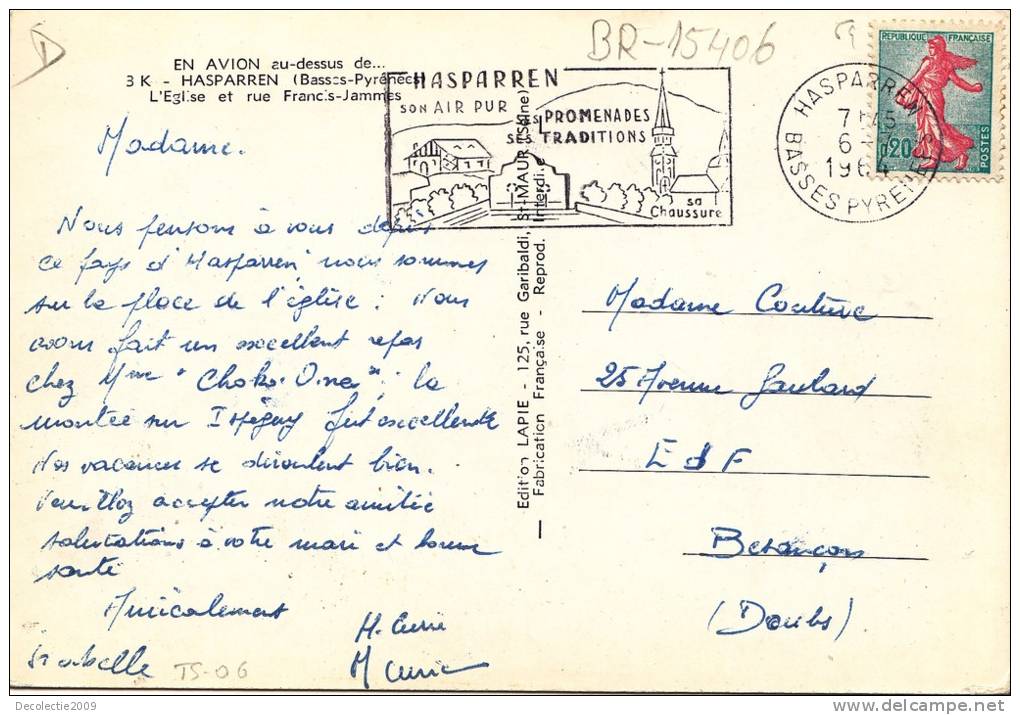 BR-15406
EN AVION au-dessus de...
3 K - HASPARREN (Basses-Pyrénées)
L'Eglise et rue Francis-Jammes
HASPARREN
SON AIR PUR SES PROMENADES
SES TRADITIONS
sa
Chaussure
HASPARREN
7H45
6
1964
BASSES PYRENEES
REPUBLIQUE FRANÇAISE
0,20
POSTES
Madame.
Nous pensons à vous depuis
ce pays d'Hasparren nous sommes
sur la place de l'église : Nous
avons fait un excellent repas
chez Mme "Choko-Ona", la
montée sur Ispéguy fut excellente
Nos vacances se déroulent bien.
Veuillez accepter notre amitié
salutations à votre mari et bonne
santé
Amicalement
H. Curie
M Curie
Isabelle
TS-06
Edition LAPIE - 125, rue Garibaldi, St-MAUR (Seine)
Fabrication Française - Reprod. Interdi
Madame Couture
25 Avenue Gaulard
E d F
Besançon
(Doubs)
Decolectie2009